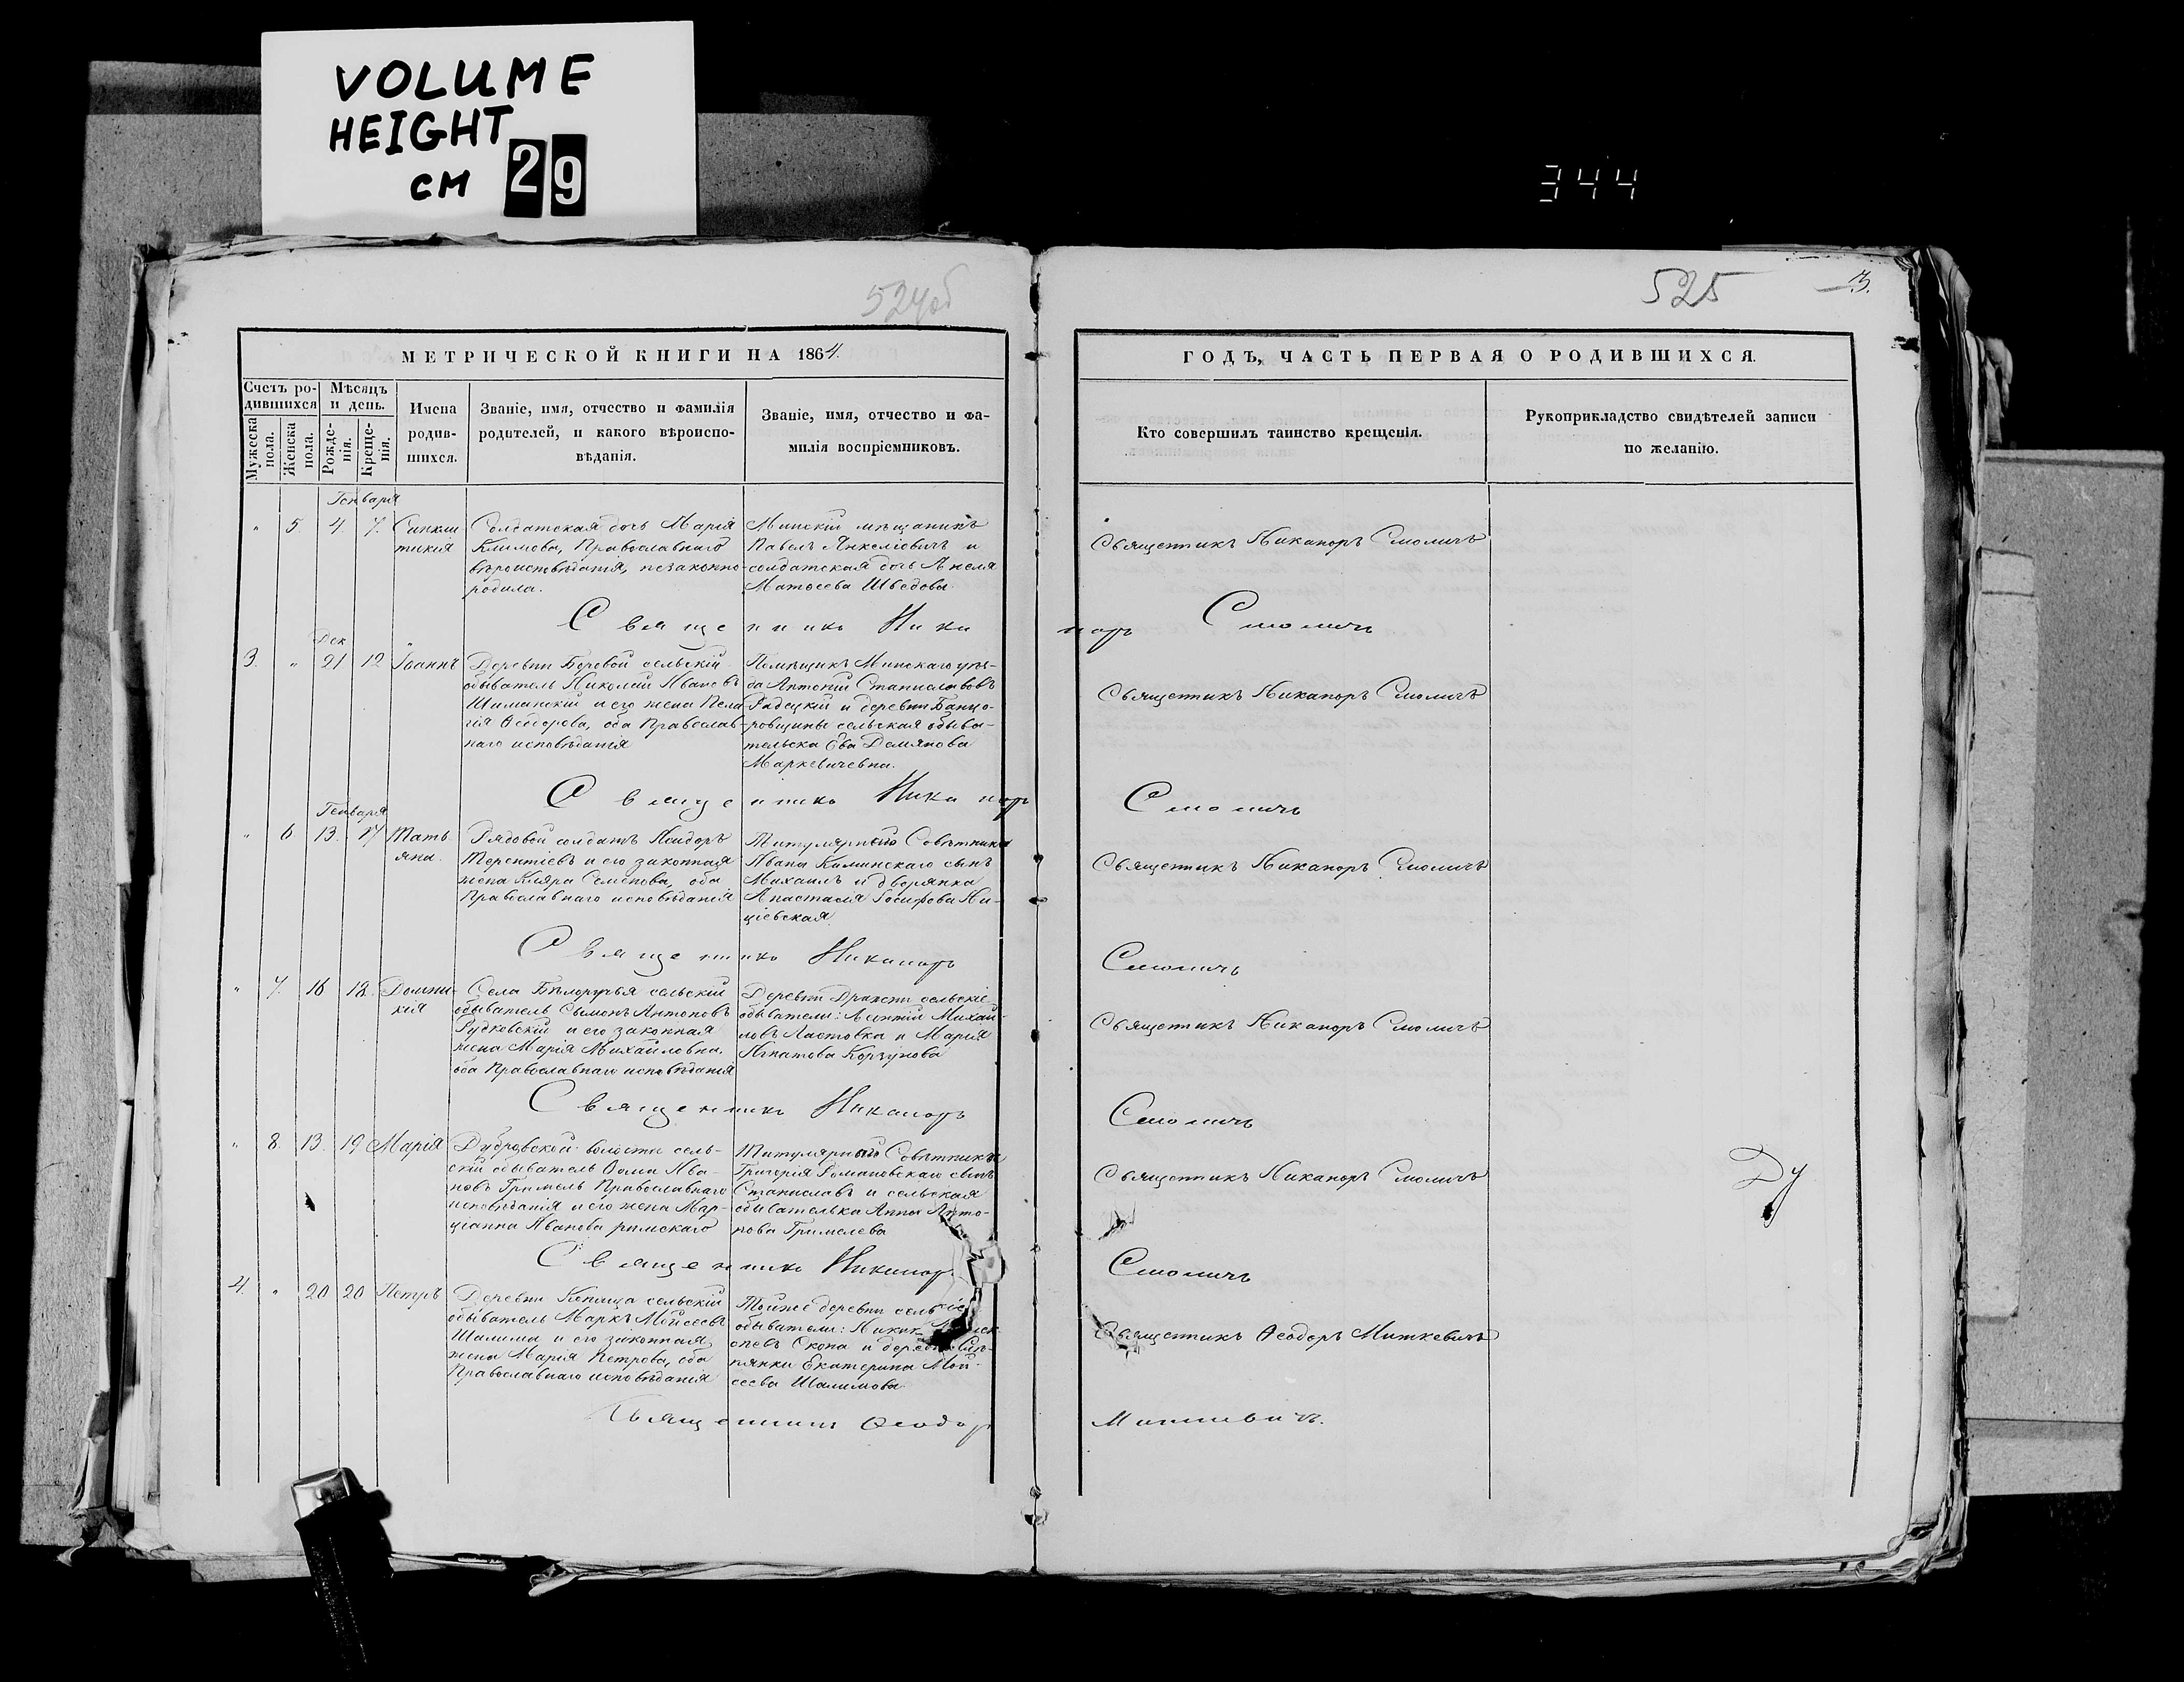 VOLUME
HEIGHT
CM 29
344
524об
525
3.
МЕТРИЧЕСКОЙ КНИГИ НА 1864.
ГОДЪ, ЧАСТЬ ПЕРВАЯ О РОДИВШИХСЯ.
Счетъ ро-
дившихся
Мѣсяцъ
и день.
Мужеска
пола.
Женска
пола.
Рожде-
нія.
Креще-
нія.
Имена
родив-
шихся.
Званіе, имя, отчество и фамилія
родителей, и какого вѣроиспо-
вѣданія.
Званіе, имя, отчество и фа-
милія воспріемниковъ.
Кто совершилъ таинство крещенія.
Рукоприкладство свидѣтелей записи
по желанію.
Генваря
" 5. 4. 7.
Синкли
тикія
Солдатская дочь Марія
Климова, Православнаго
вѣроисповѣданія, незаконно
родила.
Минскій мѣщанинъ
Павелъ и
солдатская дочь
Матѳеева Шведова.
Священникъ Никаноръ Смоличъ
Священникъ Никаноръ Смоличъ
Дек.
3. " 21 12
Іоаннъ
Деревни Боровой сельскій
обыватель Николай Ивановъ
Шиманскій и его жена Пела
гія Ѳедорова, оба Православ-
наго исповѣданія
Помѣщикъ Минскаго уѣз-
да Антоній Станиславовъ
Радецкій и деревни Банцо-
ровщины сельская обыва-
телька Ева Демянова
Маркевичевна.
Священникъ Никаноръ Смоличъ
Священникъ Никаноръ Смоличъ
Генваря
" 6. 13. 17
Тать
яна.
Рядовой солдатъ Исидоръ
Терентіевъ и его законная
жена Кляра Семенова, оба
Православнаго исповѣданія
Титулярнаго Совѣтника
Ивана Каминскаго сынъ
Михаилъ и дворянка
Анастасія Іосифова Ни-
ціевская
Священникъ Никаноръ Смоличъ
Священникъ Никаноръ Смоличъ
" 7. 16 18.
Домни-
кія
Села Бѣлоручья сельскій
обыватель Сымонъ Антоновъ
Рудковскій и его законная
жена Марія Михайловна,
оба Православнаго исповѣданія
Деревни сельскіе
обыватели: Михай-
ловъ Ластовка и Марія
Игнатова Корзунова
Священникъ Никаноръ Смоличъ
Священникъ Никаноръ Смоличъ
" 8. 13. 19
Марія
Дубровской волости сель-
скій обыватель Ѳома Ива-
новъ Гримель Православнаго
исповѣданія и его жена Мар-
ціанна Иванова римскаго
Титулярнаго Совѣтника
Григорія Романовскаго сынъ
Станиславъ и сельская
обывателька Анна Анто-
нова Гримелева
Священникъ Никаноръ Смоличъ
Священникъ Никаноръ Смоличъ
4. " 20 20
Петръ
Деревни сельскій
обыватель Маркъ Мойсеевъ
Шалима и его законная
жена Марія Петрова, оба
Православнаго исповѣданія
Тойже деревни
обыватели:
Скопа и
Екатерина Мой-
сеева Шалимова.
Священникъ Ѳеодоръ Миткевичъ
Священникъ Ѳеодоръ Миткевичъ.